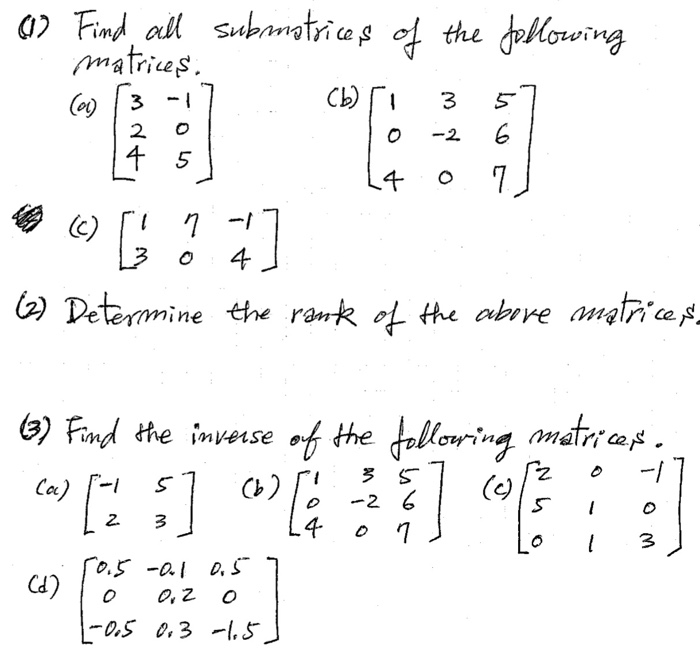 (1) Find all submatrices of the following
matrices.
(a) [3 -1
2 0
4 5]
(b) [1 3 5
0 -2 6
4 0 7]
(c) [1 7 -1
3 0 4]
(2) Determine the rank of the above matrices.
(3) Find the inverse of the following matrices.
(a) [-1 5
2 3]
(b) [1 3 5
0 -2 6
4 0 7]
(c) [2 0 -1
5 1 0
0 1 3]
(d) [0.5 -0.1 0.5
0 0.2 0
-0.5 0.3 -1.5]